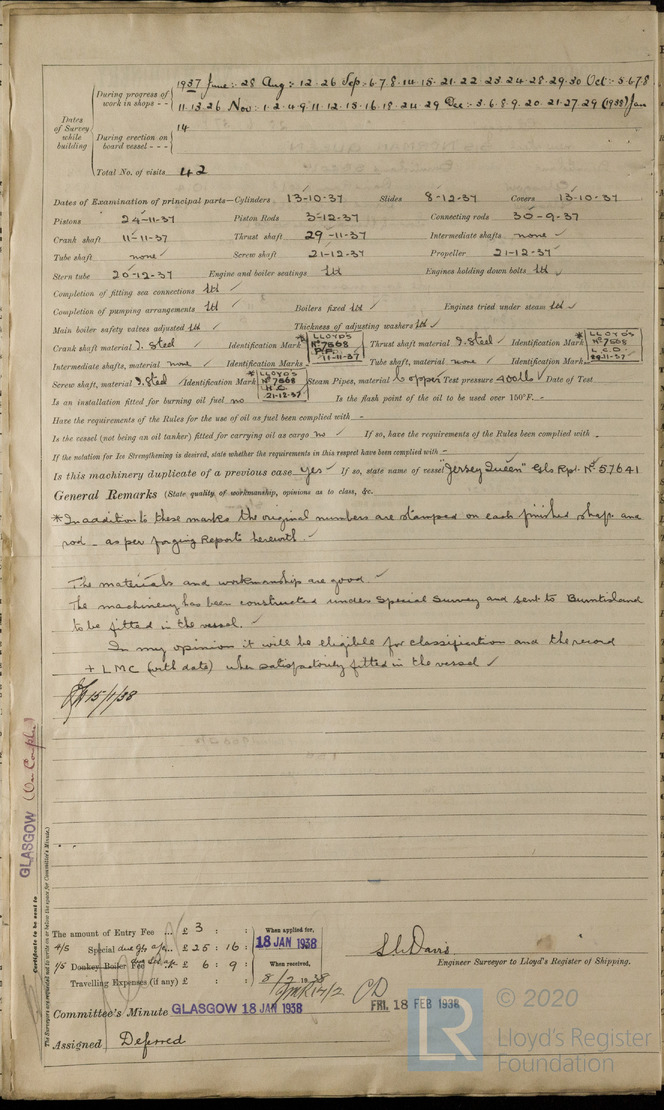 Dates of Survey while building
During progress of work in shops - -
1937 June :- 28 Aug :- 12 . 26 Sep :- 6.7.8. 14. 15. 21. 22. 23. 24. 28. 29. 30 Oct :- 5.6.7.8
11. 13. 26. Nov :- 1. 2. 4. 9. 11. 12. 15. 16. 18. 24. 29 Dec :- 3. 6. 8. 9. 20. 21. 27. 29 (1938) Jan
During erection on board vessel - - -
14
Total No. of visits 42
Dates of Examination of principal parts—Cylinders 13-10-37 Slides 8-12-37 Covers 13-10-37
Pistons 24-11-37 Piston Rods 3-12-37 Connecting rods 30-9-37
Crank shaft 11-11-37 Thrust shaft 29-11-37 Intermediate shafts none
Tube shaft none Screw shaft 21-12-37 Propeller 21-12-37
Stern tube 20-12-37 Engine and boiler seatings Engines holding down bolts
Completion of fitting sea connections
Completion of pumping arrangements Boilers fixed Engines tried under steam
Main boiler safety valves adjusted Thickness of adjusting washers
Crank shaft material I. Steel Identification Mark * LLOYD'S No 7568 P.P. 11-11-37 Thrust shaft material I. Steel Identification Mark * LLOYD'S No 7568 29-11-37
Intermediate shafts, material none Identification Marks Tube shaft, material none Identification Mark
Screw shaft, material I. Steel Identification Mark * LLOYD'S No 7568 H.C. 21-12-37 Steam Pipes, material Copper Test pressure 400 lbs Date of Test
Is an installation fitted for burning oil fuel no Is the flash point of the oil to be used over 150°F. -
Have the requirements of the Rules for the use of oil as fuel been complied with -
Is the vessel (not being an oil tanker) fitted for carrying oil as cargo no If so, have the requirements of the Rules been complied with -
If the notation for Ice Strengthening is desired, state whether the requirements in this respect have been complied with -
Is this machinery duplicate of a previous case yes If so, state name of vessel "Jersey Queen" Gls Rpt. No 57641
General Remarks (State quality of workmanship, opinions as to class, &c.
* In addition to these marks the original numbers are stamped on each finished shaft and
rod - as per forging Reports herewith.
The materials and workmanship are good.
The machinery has been constructed under Special Survey and sent to Burntisland
to be fitted in the vessel.
In my opinion it will be eligible for classification and the record
+ LMC (with date) when satisfactorily fitted in the vessel
15/1/38
GLASGOW
Certificate to be sent to
The Surveyors are requested not to write on or below the space for Committee's Minute.
The amount of Entry Fee ... £ 3 : : When applied for,
4/5 Special £ 25 : 16 : 18 JAN 1938
1/5 Donkey Boiler Fee £ 6 : 9 : When received,
Travelling Expenses (if any) £ : : 8/2 1938
17/2
S. Davis
Engineer Surveyor to Lloyd's Register of Shipping.
Committee's Minute GLASGOW 18 JAN 1938 FRI. 18 FEB 1938
Assigned Deferred
LR © 2020
Lloyd's Register
Foundation